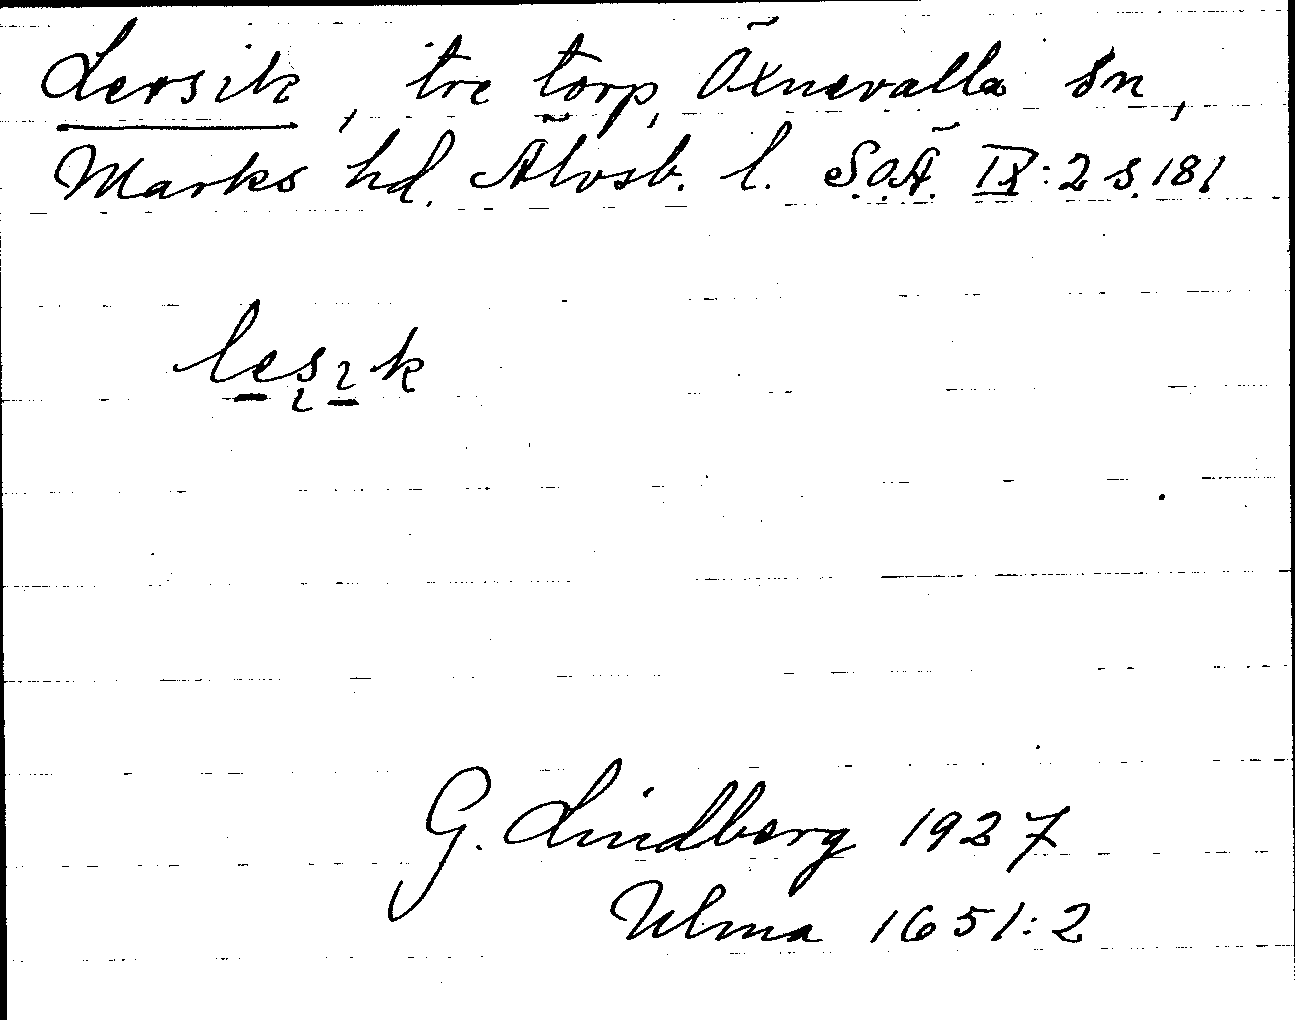 Lersik, tre torp, Öxnevalla sn,
Marks hd. Älvsb. l. S.O.Ä. IX:2 s. 181
lesık
G. Lindberg 1927
Ulma 1651:2